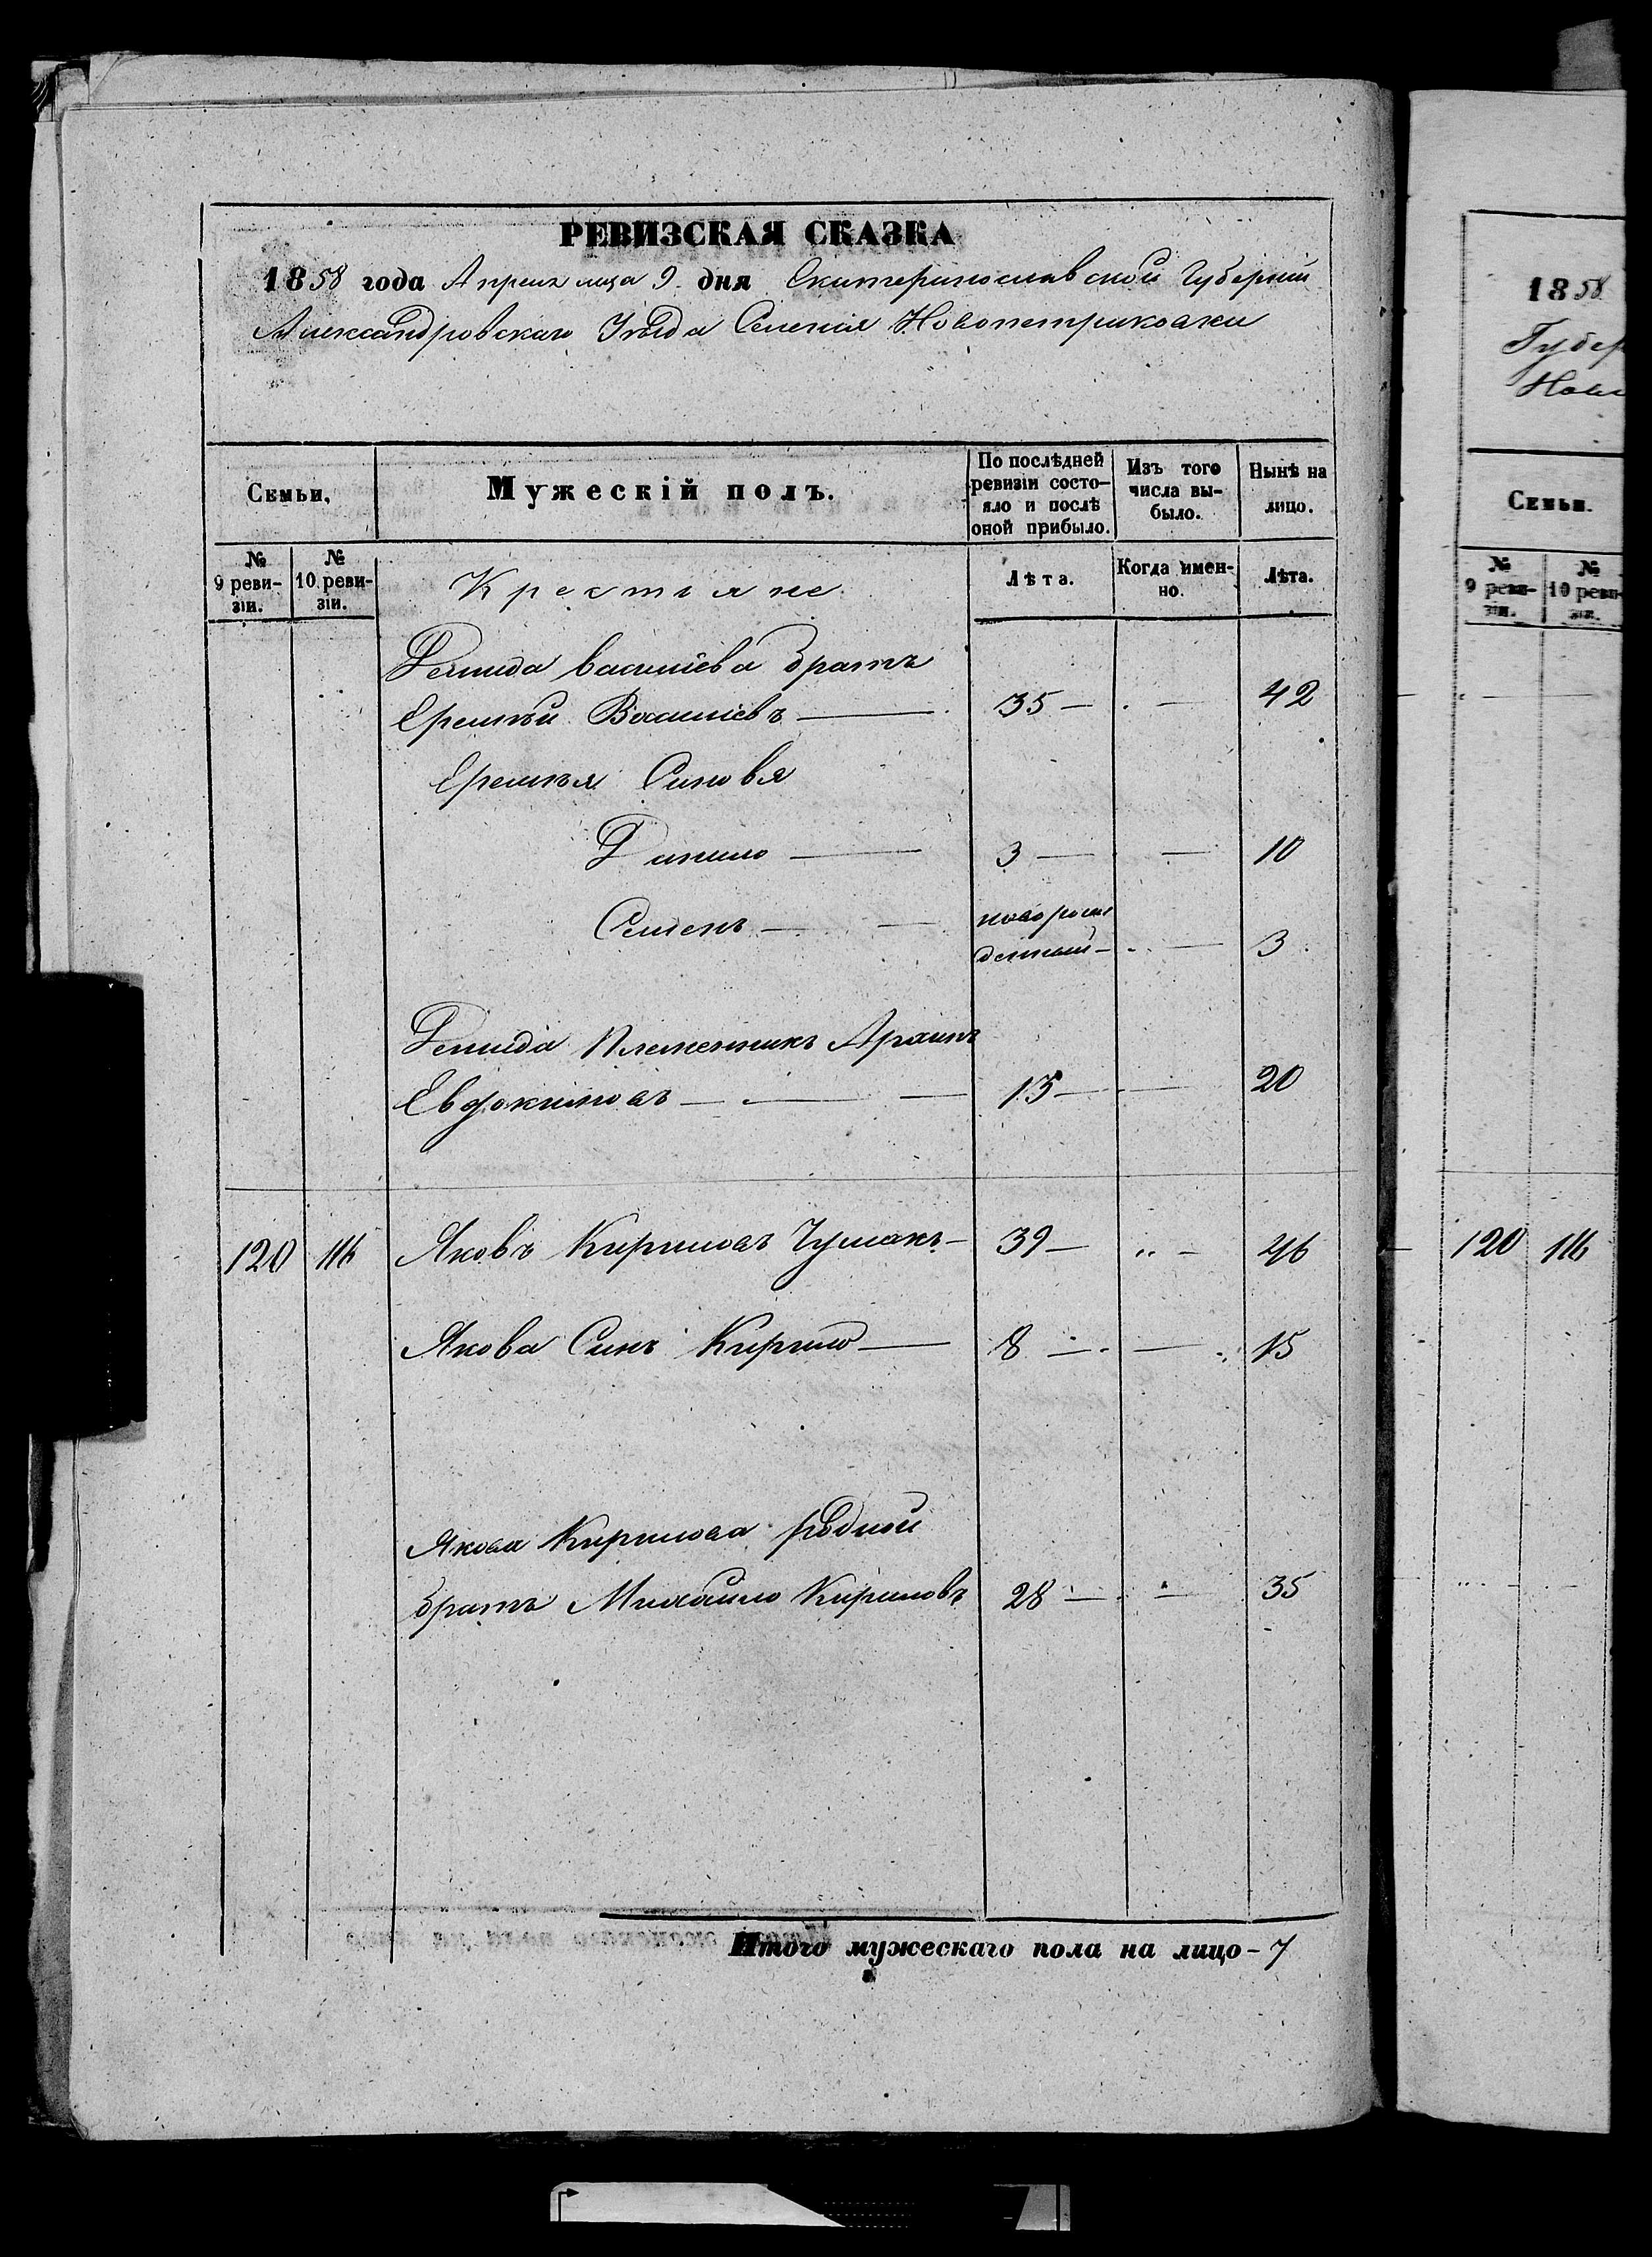 РЕВИЗСКАЯ СКАЗКА
1858 года Апреля мца 9 дня Екатеринославской Губерніи
Александровскаго Уѣзда Селенія Новопетриковки
Семьи,
Мужескій полъ.
По послѣдней ревизіи состояло и послѣ оной прибыло.
Изъ того числа выбыло.
Нынѣ на лицо.
№ 9 ревизіи.
№ 10 ревизіи.
Крестьяне
Лѣта.
Когда именно.
Лѣта.
Демида Василіева братъ
Еремѣй Василіевъ — 35 — 42
Еремѣя Синовья
Данило — 3 — 10
Семенъ — новорож
денный — 3
Демида Племенникъ Архипъ
Евдокимовъ — 13 — 20
120 116 Яковъ Кириловъ Чумакъ — 39 — „ — 46
Якова Синъ Кирило — 8 — 15
Якова Кирилова родной
братъ Михайло Кириловъ 28 — 35
Итого мужескаго пола на лицо - 7
1858
Губер
Ново
Семьи.
№ 9 ревизіи.
№ 10 реви
зіи.
120 116